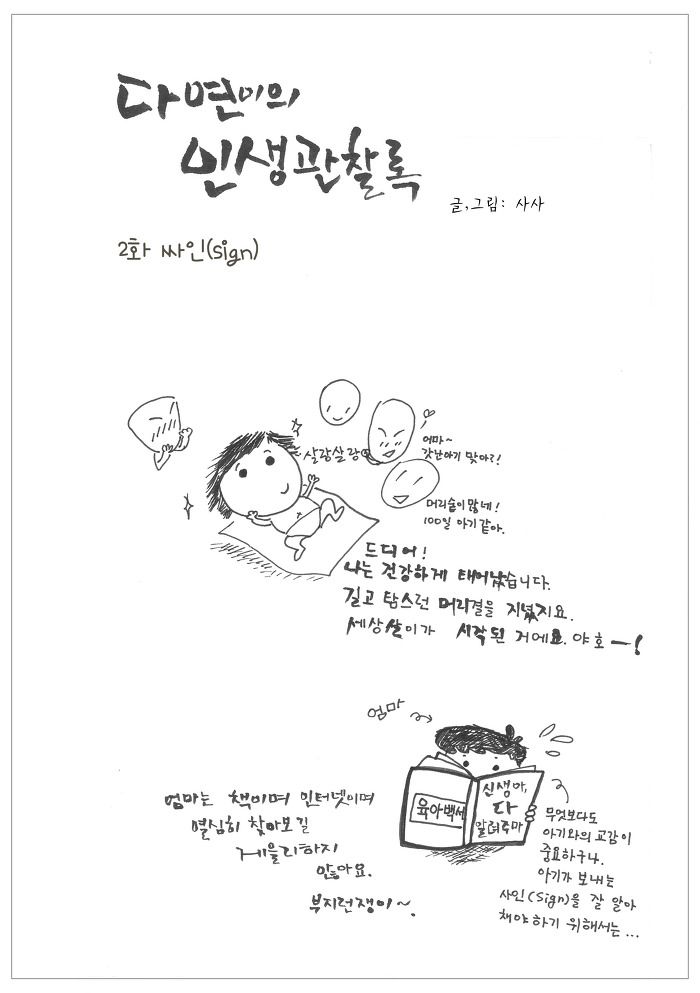 다면이의
인생관찰록
글,그림: 사사
2화 싸인(sign)
살랑살랑
어마~
갓난아기 맞아?!
머리숱이 많네!
100일 아기 같아.
드디어!
나는 건강하게 태어났습니다.
길고 탐스런 머리결을 지녔지요.
세상살이가 시작된 거에요. 야호ー!
엄마
육아백서
신생아,
다
알려주마
엄마는 책이며 인터넷이며
열심히 찾아보길
게을리하지
않아요.
부지런쟁이~.
무엇보다도
아기와의 교감이
중요하구나.
아기가 보내는
사인(Sign)을 잘 알아
채야 하기 위해서는...